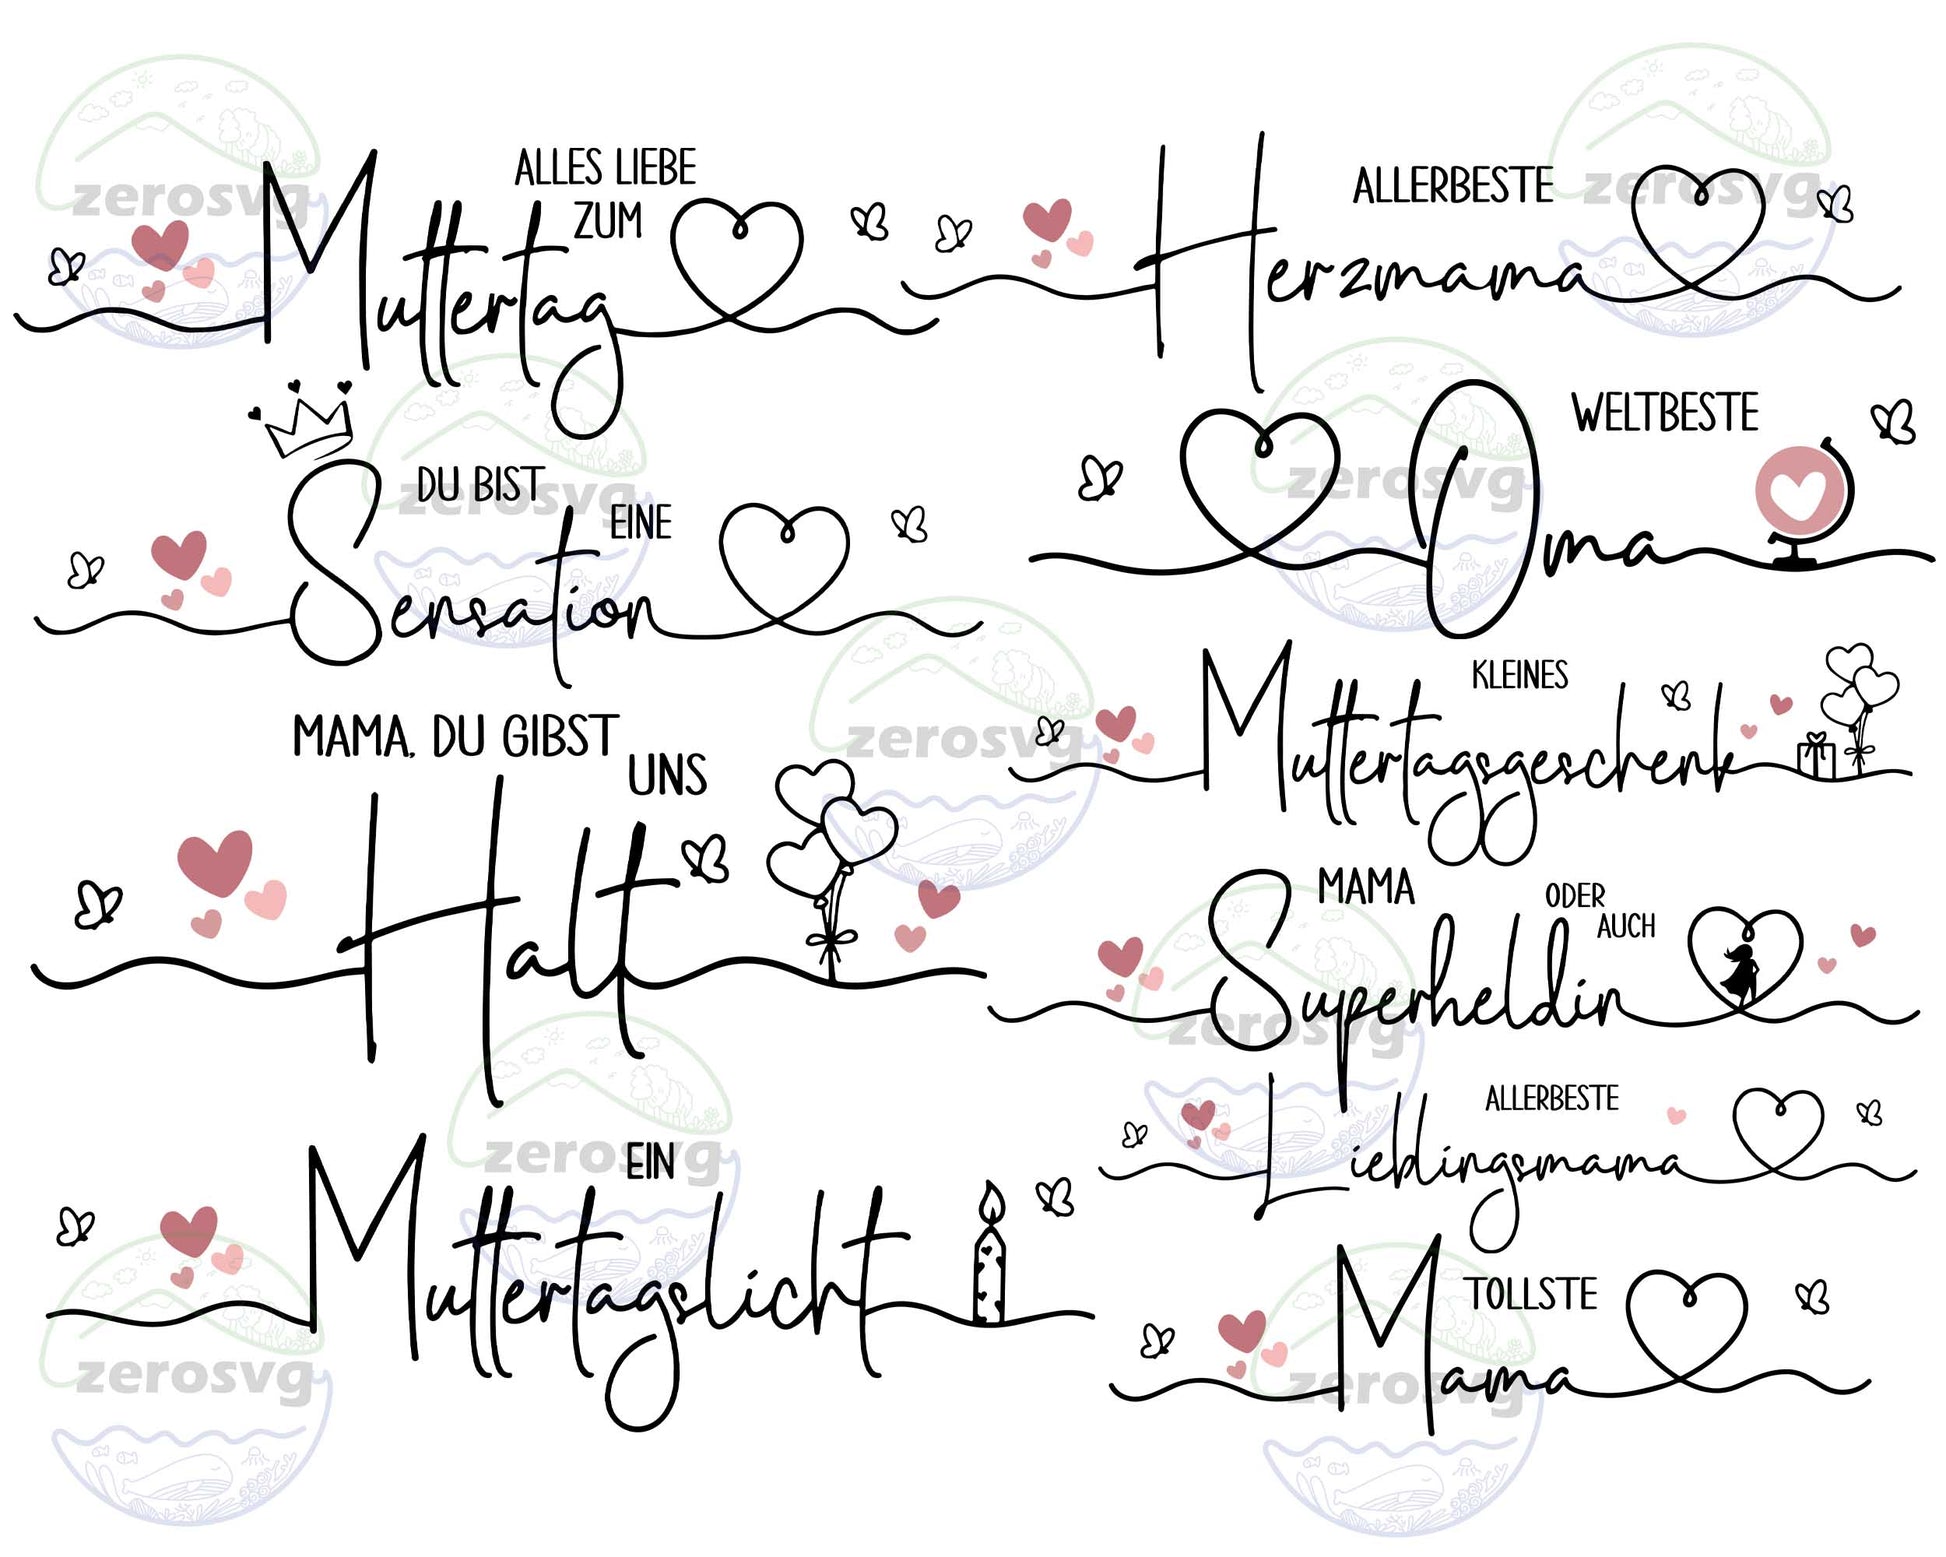 ALLES LIEBE
ZUM
Muttertag
DU BIST
EINE
Sensation
MAMA, DU GIBST
UNS
Halt
EIN
Muttertagslicht
ALLERBESTE
Herzmama
WELTBESTE
Oma
KLEINES
Muttertagsgeschenk
MAMA
ODER
AUCH
Superheldin
ALLERBESTE
Lieblingsmama
TOLLSTE
Mama
zerosvg
zerosvg
zerosvg
zerosvg
zerosvg
zerosvg
zerosvg
zerosvg
zerosvg